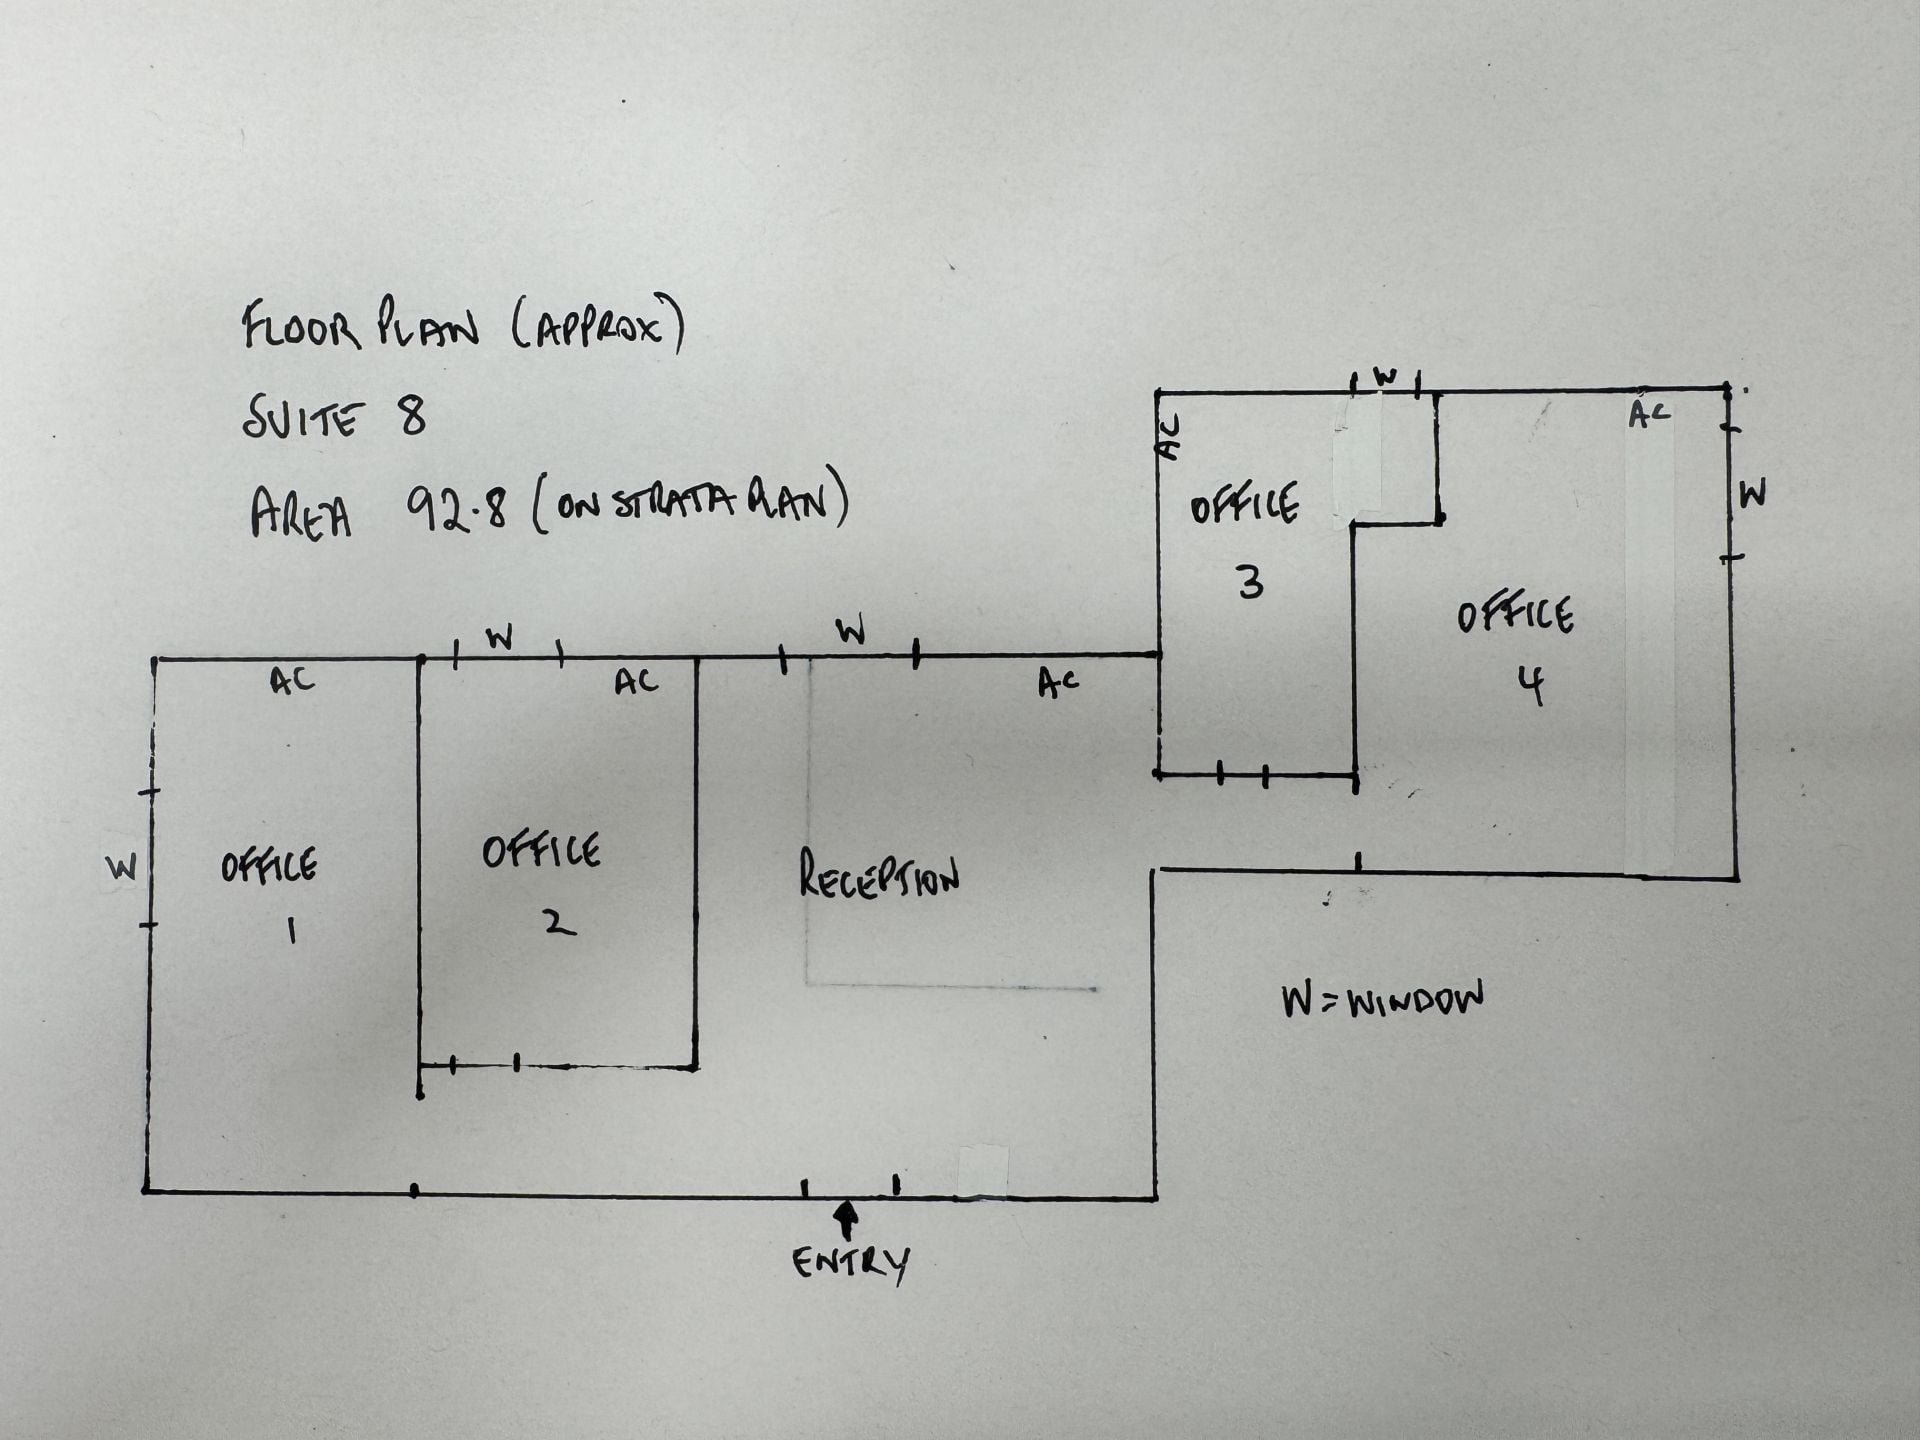 FLOOR PLAN (APPROX)
SUITE 8
AREA 92.8 (ON STRATA PLAN)
W
AC
AC
W
OFFICE
3
OFFICE
4
W
W
AC
AC
AC
W
OFFICE
1
OFFICE
2
RECEPTION
W = WINDOW
ENTRY